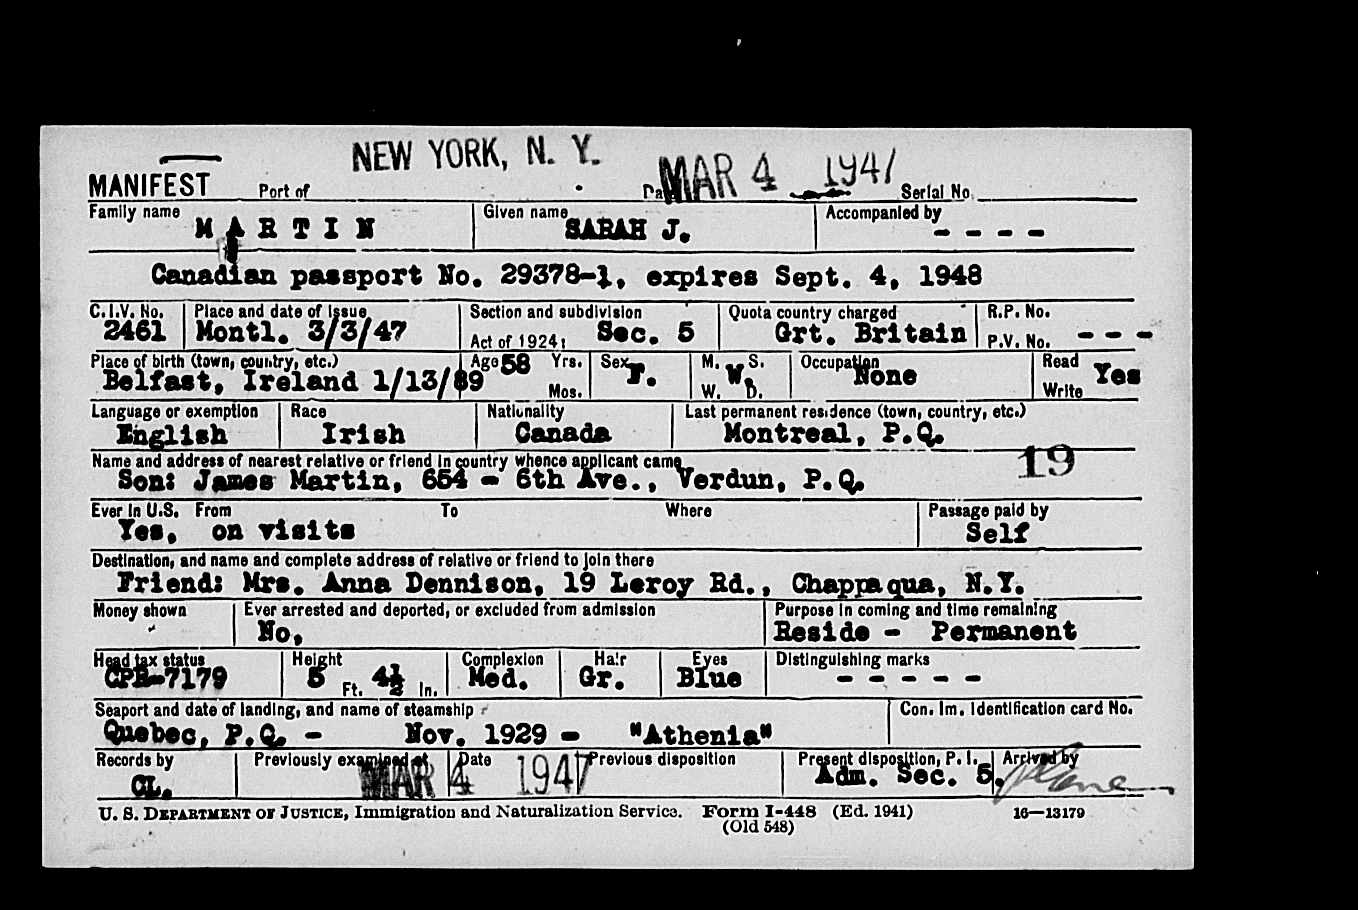 NEW YORK, N. Y.
MANIFEST Port of Date MAR 4 1947 Serial No.
Family name Given name Accompanied by
M A R T I N SARAH J. - - - -
Canadian passport No. 29378-1, expires Sept. 4, 1948
C.I.V. No. Place and date of issue Section and subdivision Quota country charged R.P. No.
2461 Montl. 3/3/47 Act of 1924: Sec. 5 Grt. Britain P.V. No. - - -
Place of birth (town, country, etc.) Age 58 Yrs. Sex M. S. Occupation Read
Belfast, Ireland 1/13/89 Mos. F. W. W. D. None Write Yes
Language or exemption Race Nationality Last permanent residence (town, country, etc.)
English Irish Canada Montreal, P.Q.
Name and address of nearest relative or friend in country whence applicant came 19
Son: James Martin, 654 - 6th Ave., Verdun, P.Q.
Ever in U.S. From To Where Passage paid by
Yes, on visits Self
Destination, and name and complete address of relative or friend to join there
Friend: Mrs. Anna Dennison, 19 Leroy Rd., Chappaqua, N.Y.
Money shown Ever arrested and deported, or excluded from admission Purpose in coming and time remaining
No, Reside - Permanent
Head tax status Height Complexion Hair Eyes Distinguishing marks
CPR-7179 5 Ft. 4½ In. Med. Gr. Blue - - - - -
Seaport and date of landing, and name of steamship Con. Im. Identification card No.
Quebec, P.Q. - Nov. 1929 - "Athenia"
Records by Previously examined at Date Previous disposition Present disposition, P. I. Arrived by
CL. MAR 4 1947 Adm. Sec. 5.
U. S. DEPARTMENT OF JUSTICE, Immigration and Naturalization Service. Form I-448 (Ed. 1941) 16—13179
(Old 548)